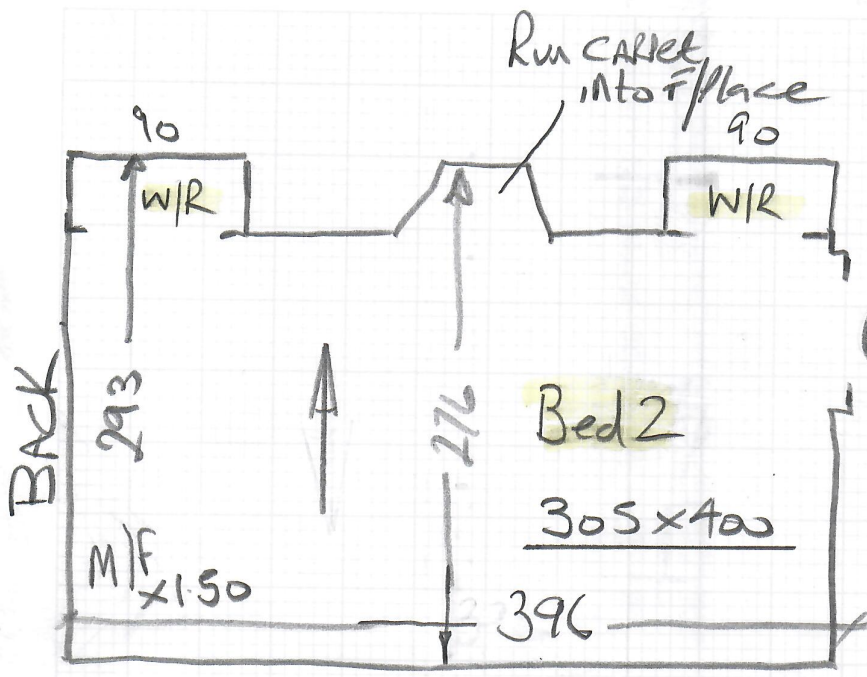 Run CARPet
into F/Place
90
90
W/R
W/R
BACK
293
276
Bed 2
305 x 400
M/F
x1.50
396